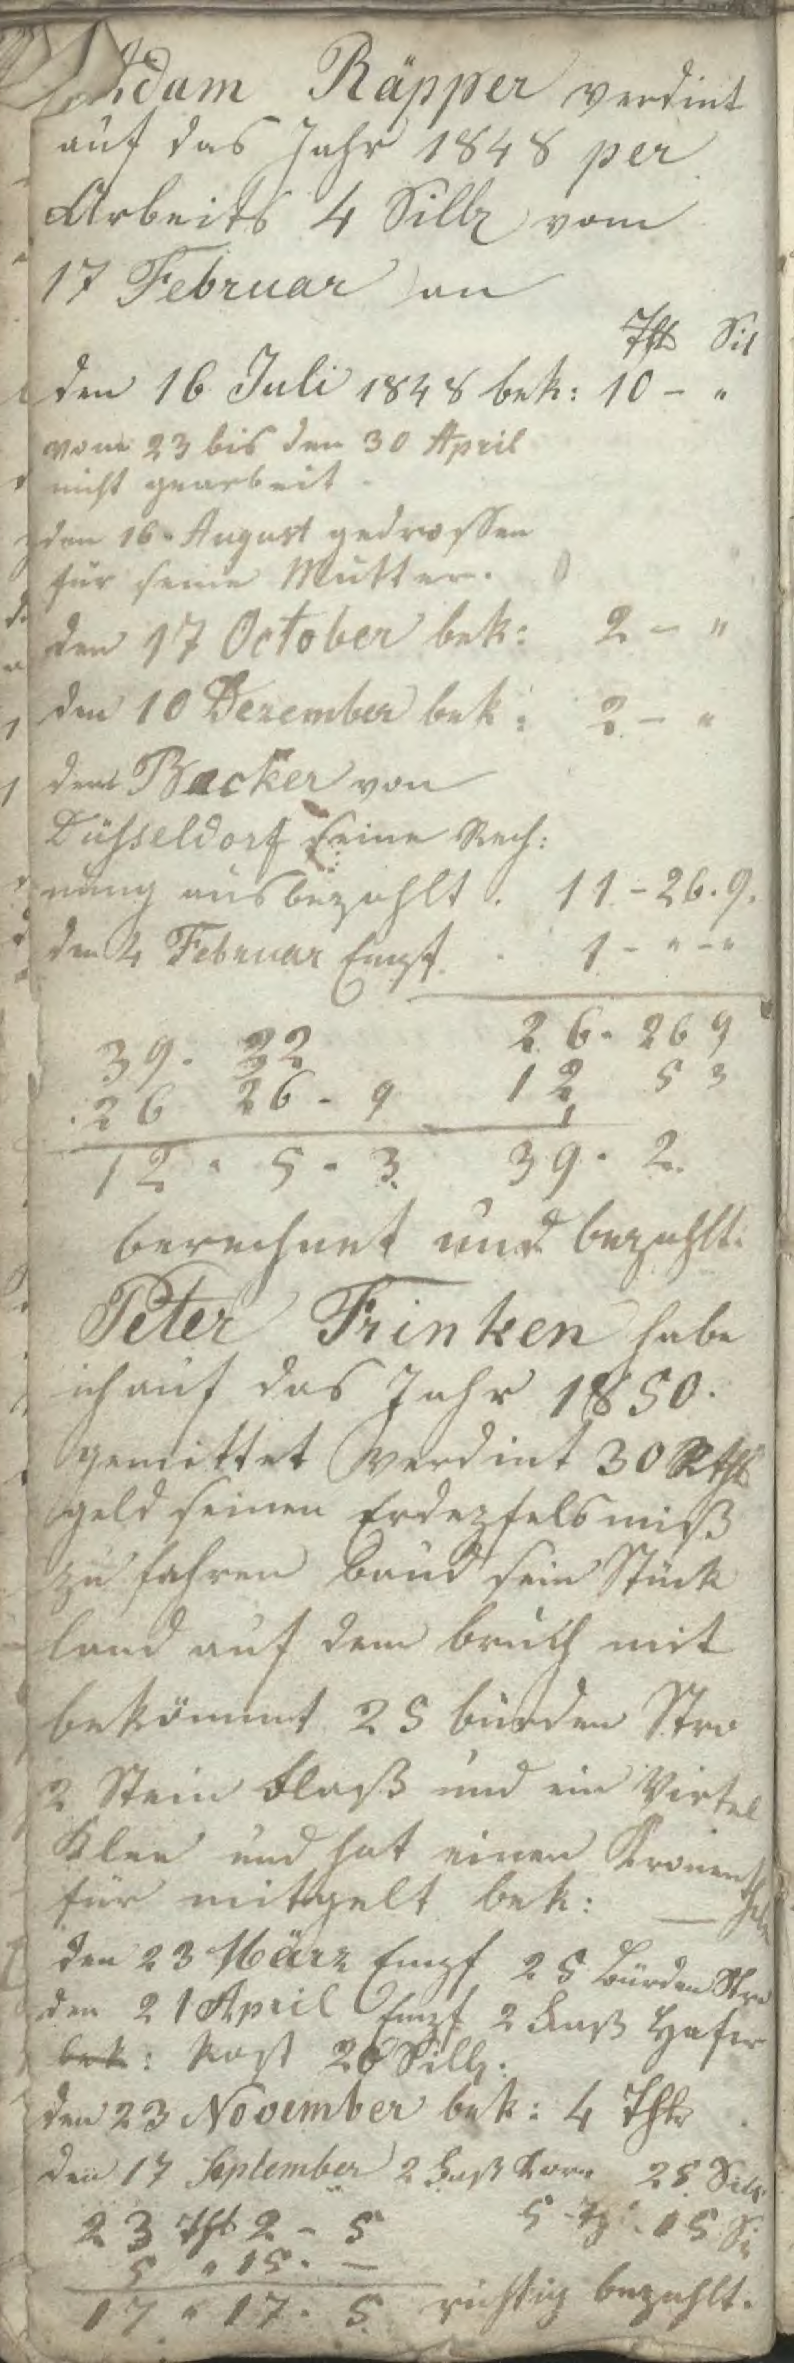 Adam Räpper verdint
auf das Jahr 1848 per
Arbeits 4 Silbr vom
17 Februar an
Thl Sil
den 16 Juli 1848 bek: 10 - "
vom 23 bis den 30 April
nicht gearbeit.
den 16. August gedroschen
für seine Mutter.
den 17 October bek: 2 - "
den 10 Dezember bek: 2 - "
dem Backer von
Düsseldorf seine Rech:
nung ausbezahlt. 11 - 26. 9.
den 4 Februar Empf. 1 - " - "
39. 22 26. 26 9
26 26 - 9 12 5 3
12 " 5 - 3. 39. 2.
berechnet und bezahlt.
Peter Frinken habe
ich auf das Jahr 1850.
gemittet verdint 30 Rthl
geld seinen Erdepfels miß
zu fahren baud sein Stück
land auf dem bruch mit
bekömmt 25 bürden Stro
2 Stein Flaß und ein Virtel
Klee und hat einen Kronenthaler
für mitgelt bek:
den 23 März Empf 25 Bürden Stro
den 21 April Empf 2 Faß Hafer
bek: kost 26 Silb.
den 23 November bek: 4 Thlr
den 17 September 2 Faß Korn 25 Silb
23 Thl 2 - 5 5 - Th. 15 Si
5 " 15. -
17 " 17. 5 richtig bezahlt.